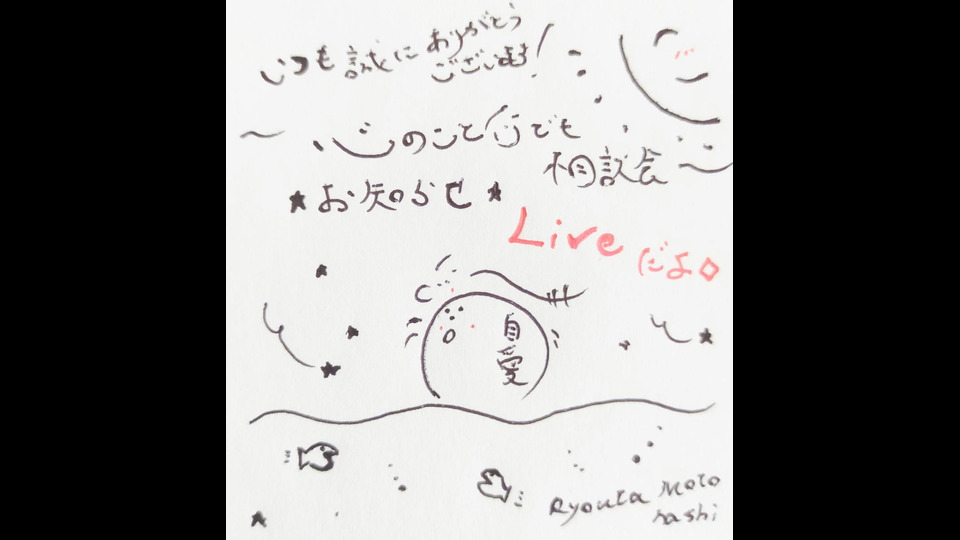 いつも誠にありがとう
ございます!
〜心のこと何でも
相談会〜
★お知らせ★
Live だよ◇
自愛
Ryouta Moto
hashi